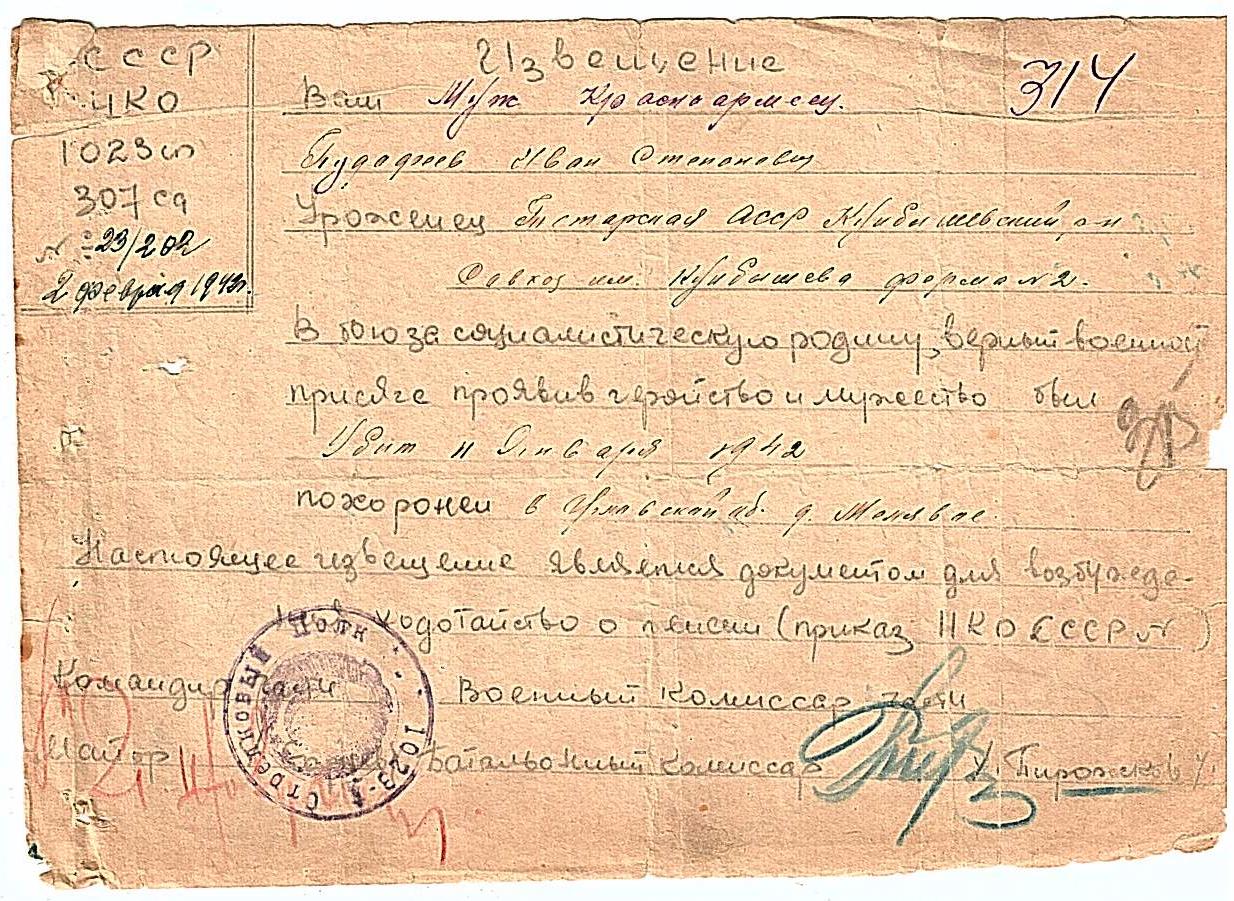 СССР
НКО
1023 сп
307 сд
№ 23/202
2 февраля 1942г.
Извещение
314
Ваш Муж Красноармеец.
Иван Степанович
Уроженец Татарская АССР Куйбышевский р-н
Савхоз им. Куйбышева ферма №2.
В бою за социалистическую родину, верный военной
присяге проявив геройство и мужество был
Убит 11 Января 1942
похоронен в обл. д.
Настоящее извещение является документом для возбужде-
ния ходотайство о пенсии (приказ НКО СССР № )
Командир части Военный Комиссар части
Майор Батальонный Комиссар /Пирожков/.
1023-й Стрелковый Полк